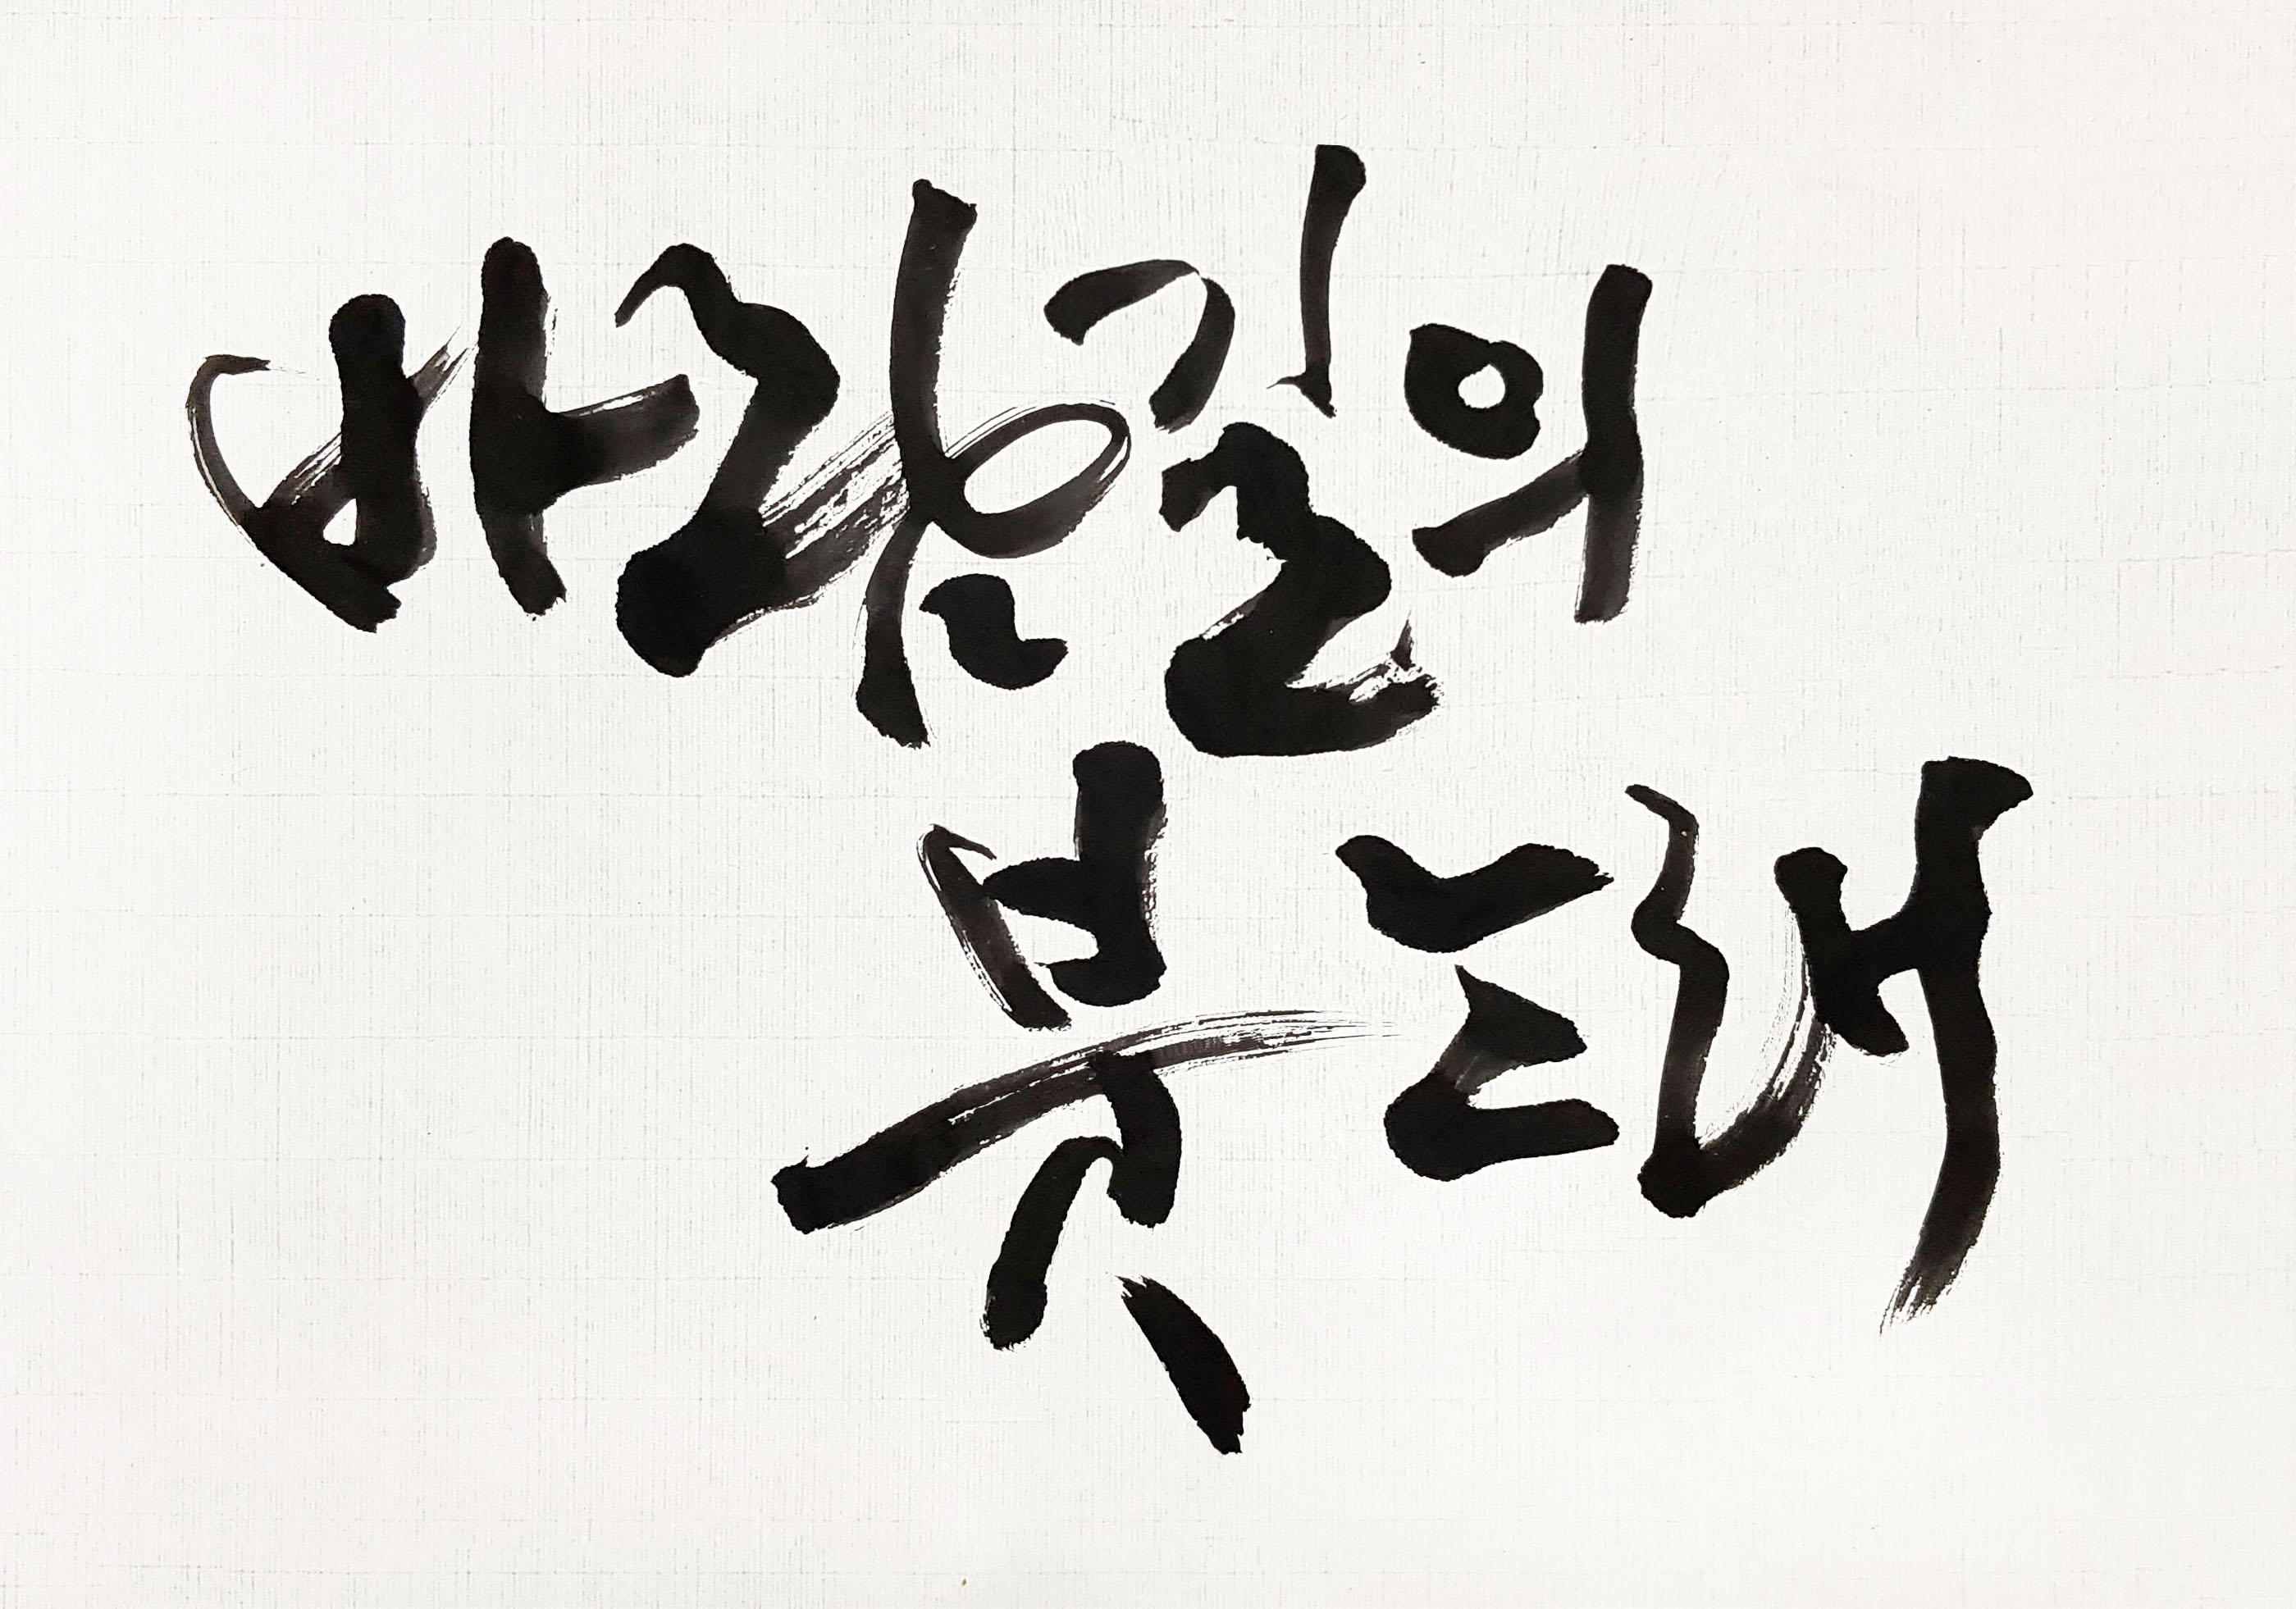 바람길의
붓노래